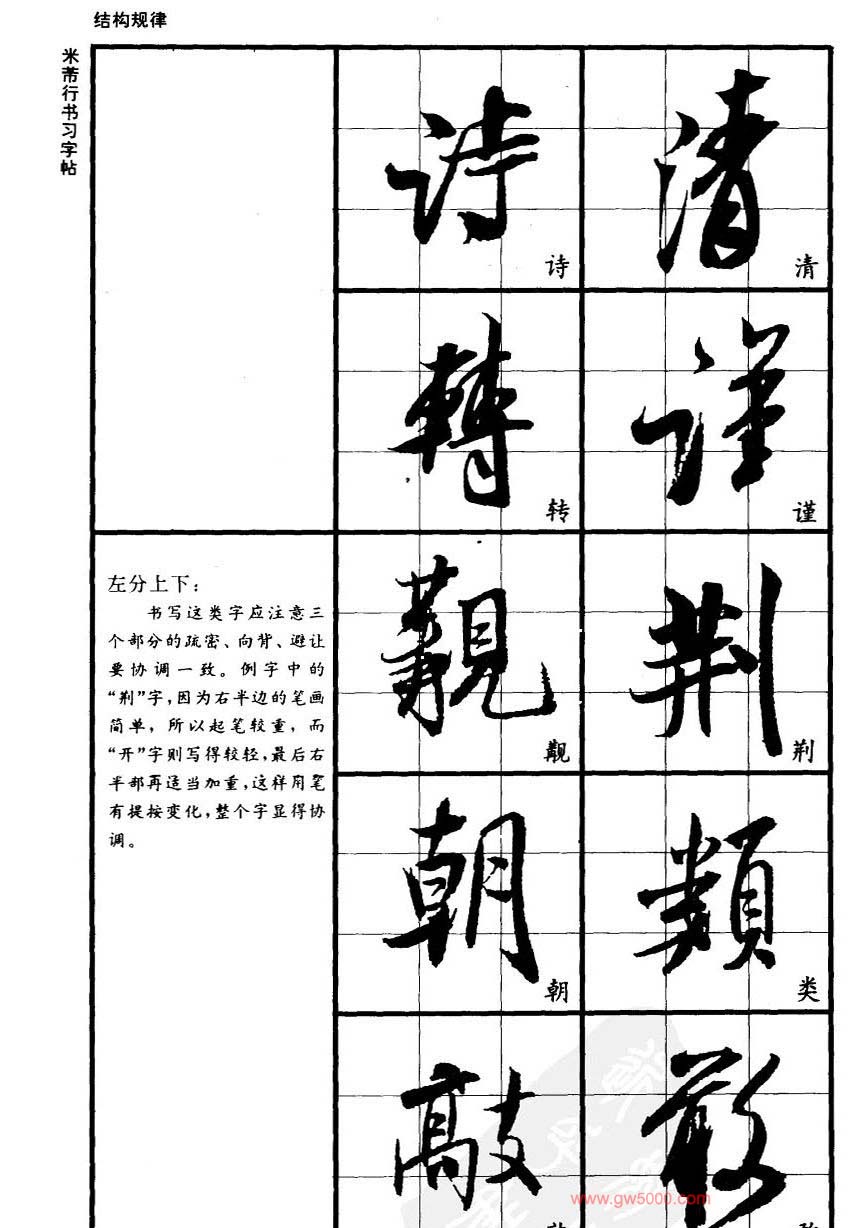 结构规律
米芾行书习字帖
诗
清
转
谨
左分上下：
书写这类字应注意三
个部分的疏密、向背、避让
要协调一致。例字中的
“荆”字，因为右半边的笔画
简单，所以起笔较重，而
“开”字则写得较轻，最后右
半部再适当加重，这样用笔
有提按变化，整个字显得协
调。
觏
荆
朝
类
敲
www.gw5000.com